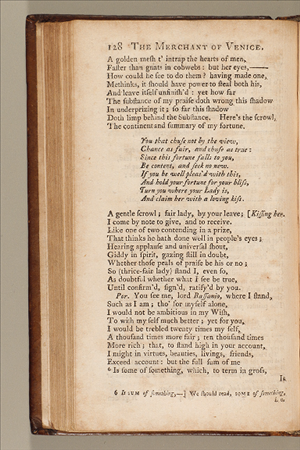 128 THE MERCHANT OF VENICE.
A golden mesh t' intrap the hearts of men,
Faster than gnats in cobwebs: but her eyes,———
How could he see to do them? having made one,
Methinks, it should have power to steal both his,
And leave itself unfinish'd: yet how far
The substance of my praise doth wrong this shadow
In underprizing it; so far this shadow
Doth limp behind the Substance. Here's the scrowl,
The continent and summary of my fortune.
You that chuse not by the view,
Chance as fair, and chuse as true:
Since this fortune falls to you,
Be content, and seek no new.
If you be well pleas'd with this,
And hold your fortune for your bliss,
Turn you where your Lady is,
And claim her with a loving kiss.
A gentle scrowl; fair lady, by your leave; [Kissing her.
I come by note to give, and to receive.
Like one of two contending in a prize,
That thinks he hath done well in people's eyes;
Hearing applause and universal shout,
Giddy in spirit, gazing still in doubt,
Whether those peals of praise be his or no;
So (thrice-fair lady) stand I, even so,
As doubtful whether what I see be true,
Until confirm'd, sign'd, ratify'd by you.
Por. You see me, lord Bassanio, where I stand,
Such as I am; tho' for myself alone,
I would not be ambitious in my Wish,
To wish my self much better; yet for you,
I would be trebled twenty times my self,
A thousand times more fair; ten thousand times
More rich; that, to stand high in your account,
I might in virtues, beauties, livings, friends,
Exceed account: but the full sum of me
6 Is some of something, which, to term in gross,
Is
6 Is SUM of something,—] We should read, SOME of something,